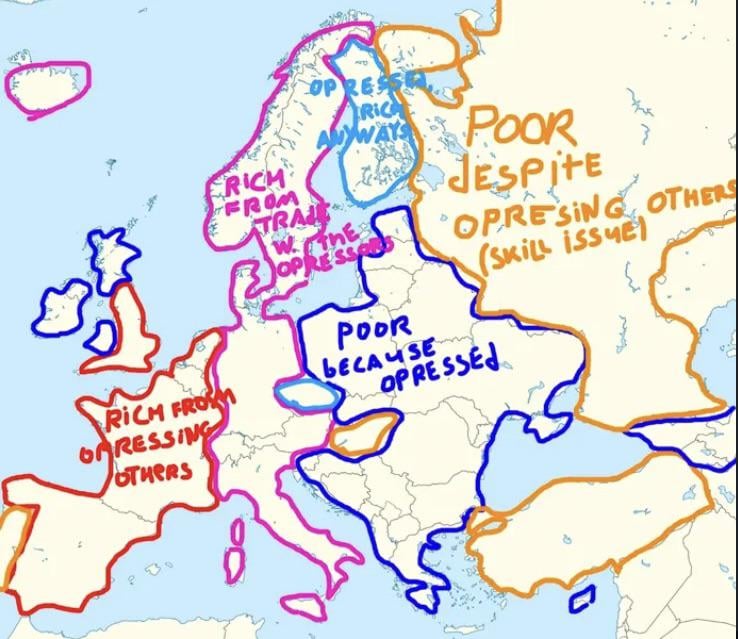 OPRESSED,
RICH
ANYWAYS
POOR
dESPiTE
OPRESiNG OTHERS
(SKiLL iSSUE)
RiCH
FROM
TRADE
W. THE
OPRESSORS
POOR
bECAUSE
OPRESSEd
RiCH FROM
OPRESSiNG
OTHERS